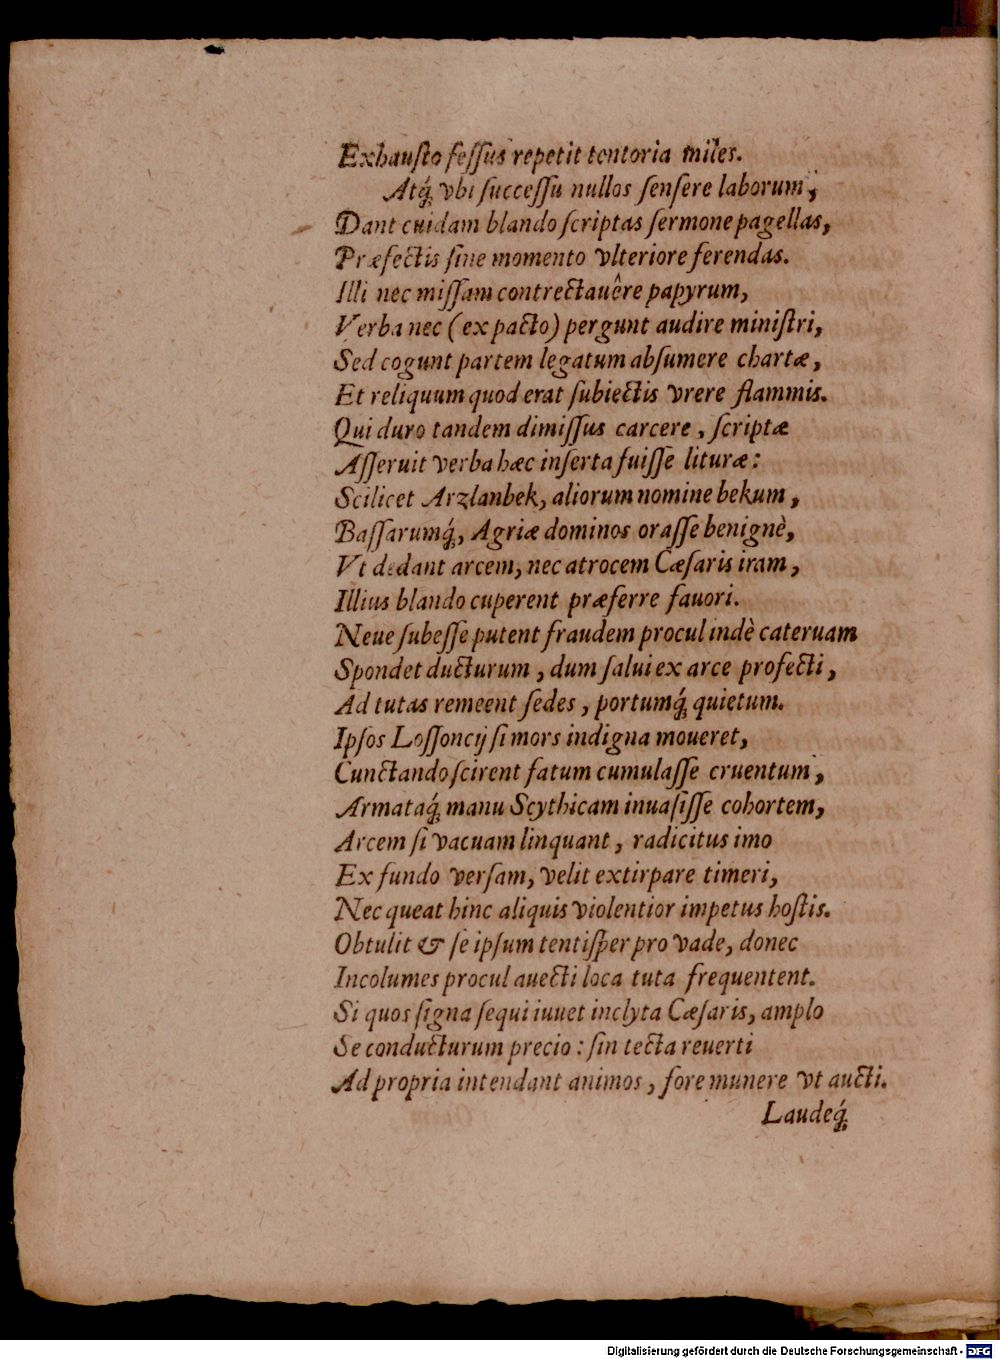 Exhauſto feſſus repetit tentoria miles.
Atq́; vbi ſucceſſu nullos ſenſere laborum,
Dant cuidam blando ſcriptas ſermone pagellas,
Præfectis ſine momento vlteriore ferendas.
Illi nec miſſam contrectauêre papyrum,
Verba nec (ex pacto) pergunt audire miniſtri,
Sed cogunt partem legatum abſumere chartæ,
Et reliquum quod erat ſubiectis vrere flammis.
Qui duro tandem dimiſſus carcere, ſcriptæ
Aſſeruit verba hæc inſerta fuiſſe lituræ:
Scilicet Arzlanbek, aliorum nomine bekum,
Baſſarumq́;, Agriæ dominos oraſſe benignè,
Vt dedant arcem, nec atrocem Cæſaris iram,
Illius blando cuperent præferre fauori.
Neue ſubeſſe putent fraudem procul indè cateruam
Spondet ducturum, dum ſalui ex arce profecti,
Ad tutas remeent ſedes, portumq́; quietum.
Ipſos Loſſoncij ſi mors indigna moueret,
Cunctando ſcirent fatum cumulaſſe cruentum,
Armataq́; manu Scythicam inuaſiſſe cohortem,
Arcem ſi vacuam linquant, radicitus imo
Ex fundo verſam, velit extirpare timeri,
Nec queat hinc aliquis violentior impetus hoſtis.
Obtulit & ſe ipſum tentiſper pro vade, donec
Incolumes procul auecti loca tuta frequentent.
Si quos ſigna ſequi iuuet inclyta Cæſaris, amplo
Se conducturum precio: ſin tecta reuerti
Ad propria intendant animos, fore munere vt aucti.
Laudeq́;
Digitalisierung gefördert durch die Deutsche Forschungsgemeinschaft - DFG